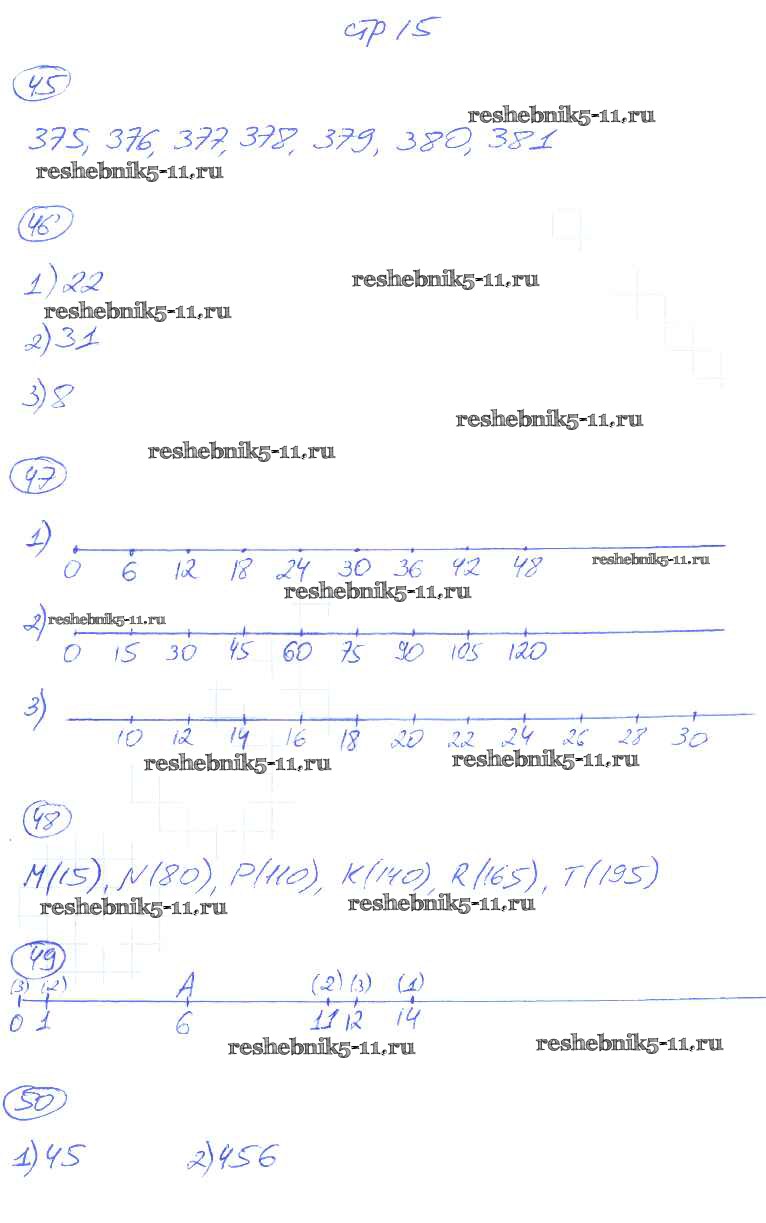 стр 15
45
reshebnik5-11.ru
375, 376, 377, 378, 379, 380, 381
reshebnik5-11.ru
46
1) 22
reshebnik5-11.ru
reshebnik5-11.ru
2) 31
3) 8
reshebnik5-11.ru
reshebnik5-11.ru
47
1)
0 6 12 18 24 30 36 42 48
reshebnik5-11.ru
reshebnik5-11.ru
2) reshebnik5-11.ru
0 15 30 45 60 75 90 105 120
3)
10 12 14 16 18 20 22 24 26 28 30
reshebnik5-11.ru reshebnik5-11.ru
48
M(15), N(80), P(110), K(140), R(165), T(195)
reshebnik5-11.ru reshebnik5-11.ru
49
(3) (2) A (2) (3) (1)
0 1 6 11 12 14
reshebnik5-11.ru reshebnik5-11.ru
50
1) 45 2) 456